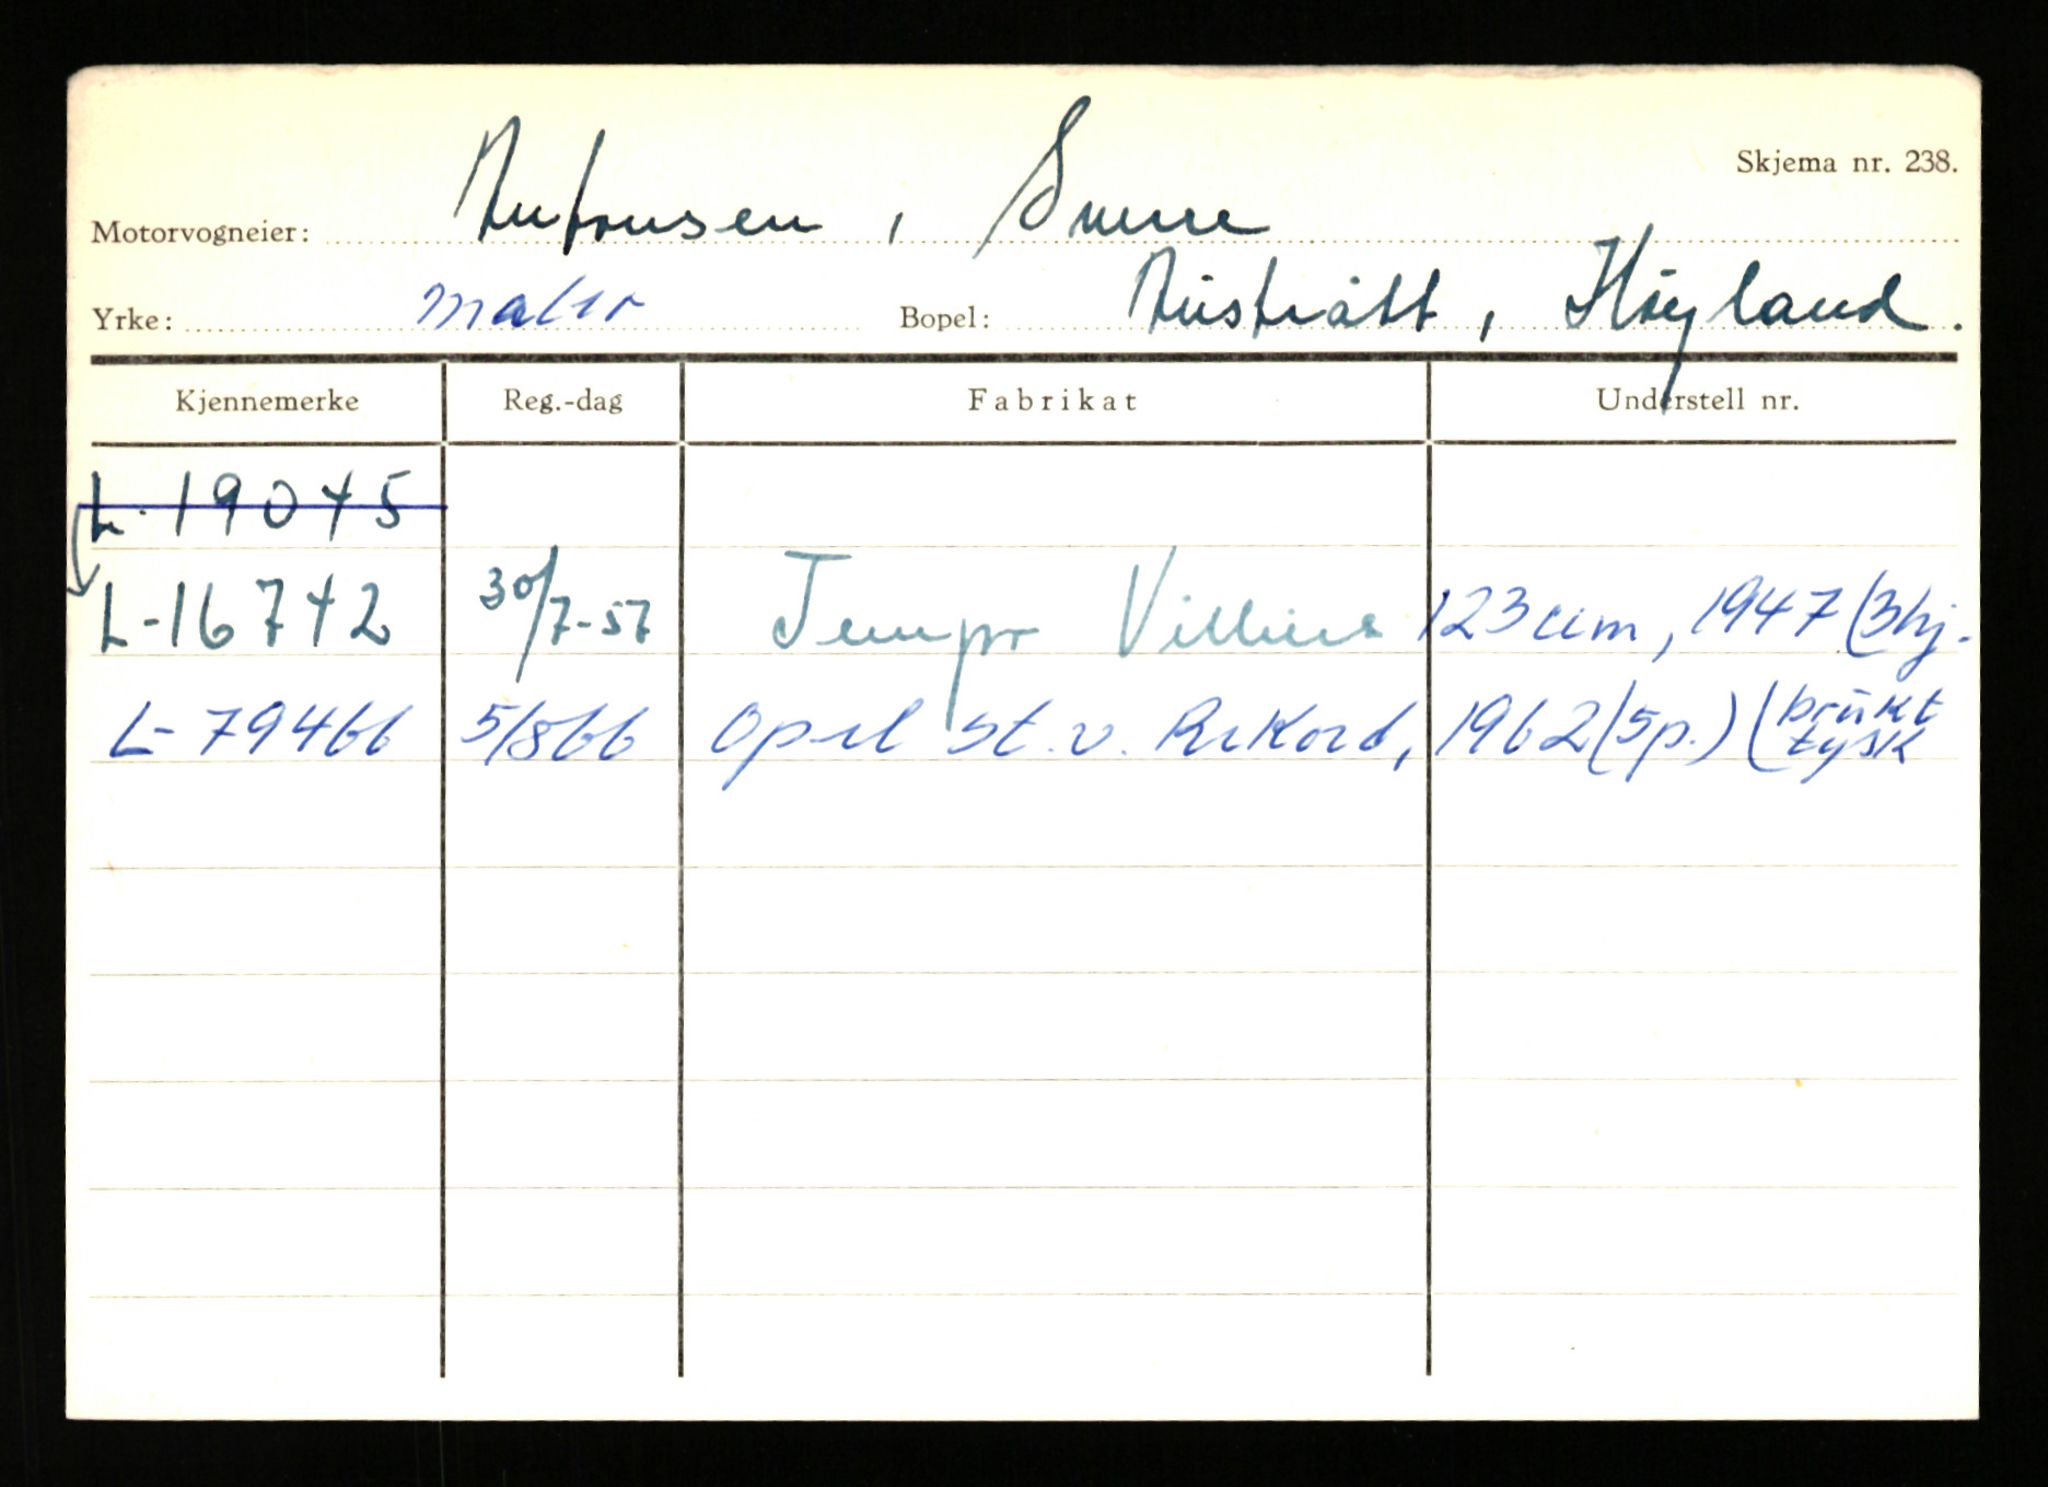 Skjema nr. 238.
Motorvogneier: Antonsen, Sverre
Yrke: maler Bopel: Austrått, Høyland.
Kjennemerke Reg.-dag Fabrikat Understell nr.
L-19045
L-16742 30/7-57 Tempo Villiers 123 ccm, 1947 (3hj.
L-79466 5/8 66 Opel st.v. Rekord, 1962 (5p.) (brukt
tysk